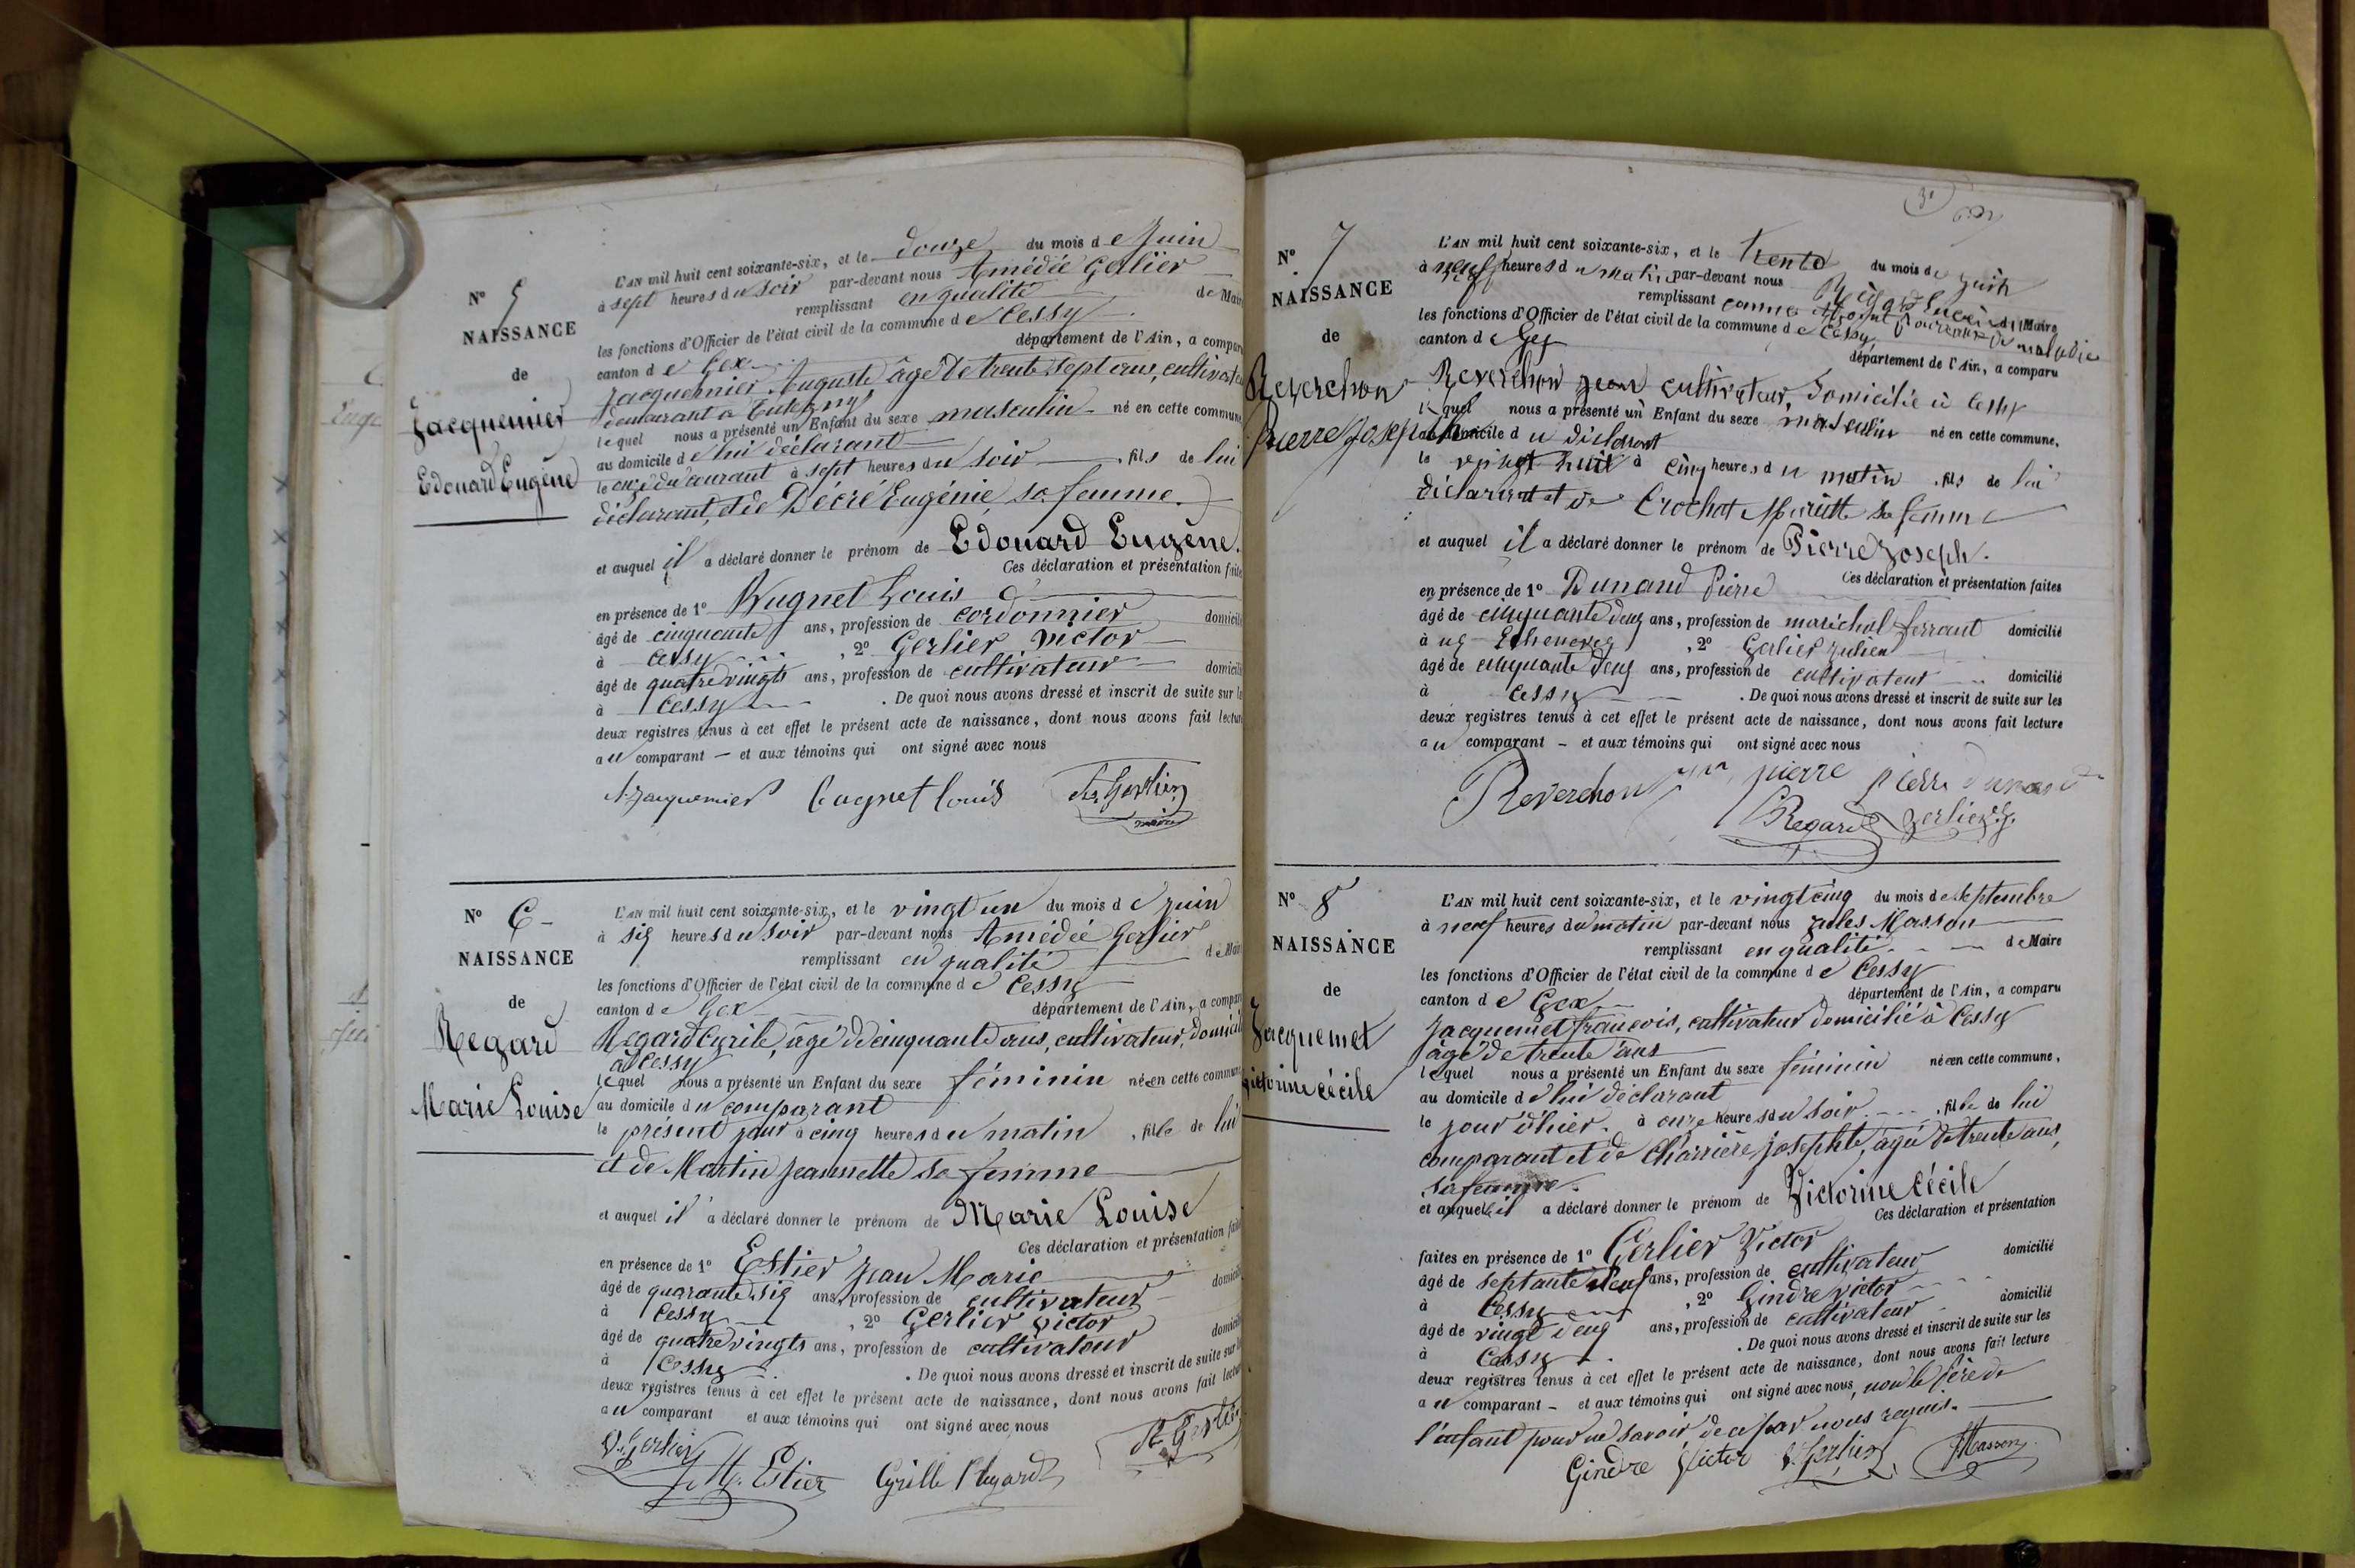 N° 5
NAISSANCE
de
Jacquemier
Edouard Eugène
L'AN mil huit cent soixante-six, et le douze du mois de Juin
à sept heures du soir par-devant nous Amédée Gerlier
remplissant en qualité de Mair
les fonctions d'Officier de l'état civil de la commune de Cessy
canton de Gex département de l'Ain, a compar
Jacquemier Auguste âgé de trente sept ans, cultivate
demeurant à
lequel nous a présenté un Enfant du sexe masculin né en cette commune
au domicile de lui déclarant
le onze du courant à sept heures du soir, fils de lui
déclarant, et de Décré Eugénie, sa femme.
et auquel il a déclaré donner le prénom de Edouard Eugène.
Ces déclaration et présentation faite
en présence de 1° Hugnet Louis
âgé de cinquante ans, profession de cordonnier domicili
à Cessy, 2° Gerlier Victor
âgé de quatre vingts ans, profession de cultivateur domicili
à Cessy. De quoi nous avons dressé et inscrit de suite sur le
deux registres tenus à cet effet le présent acte de naissance, dont nous avons fait lectur
au comparant — et aux témoins qui ont signé avec nous
A. Jacquemier Louis Gerlier
maire
N° 6
NAISSANCE
de
Regard
Marie Louise
L'AN mil huit cent soixante-six, et le vingt un du mois de juin
à six heures du soir par-devant nous Amédée Gerlier
remplissant en qualité de Mair
les fonctions d'Officier de l'état civil de la commune de Cessy
canton de Gex département de l'Ain, a compar
Regard Cyrile, âgé de cinquante ans, cultivateur, domicil
à Cessy
lequel nous a présenté un Enfant du sexe féminin née en cette commun
au domicile du comparant
le présent jour à cinq heures du matin, fille de lui
et de Martin Jeannette sa femme
et auquel il a déclaré donner le prénom de Marie Louise
Ces déclaration et présentation fait
en présence de 1° Estier Jean Marie
âgé de quarante six ans, profession de cultivateur domicil
à Cessy, 2° Gerlier Victor
âgé de quatre vingts ans, profession de cultivateur domicil
à Cessy. De quoi nous avons dressé et inscrit de suite sur
deux registres tenus à cet effet le présent acte de naissance, dont nous avons fait lectu
au comparant et aux témoins qui ont signé avec nous
V. Gerlier J. M. Estier Cyrille Regard
N° 7
NAISSANCE
de
Reverchon
Pierre Joseph
L'AN mil huit cent soixante-six, et le trente du mois de juin
à neuf heures du matin par-devant nous Regard
remplissant comme adjoint pour cause de maladie du Maire
les fonctions d'Officier de l'état civil de la commune de Cessy
canton de Gex département de l'Ain, a comparu
Reverchon Jean cultivateur, domicilié à Cessy
lequel nous a présenté un Enfant du sexe masculin né en cette commune,
au domicile du déclarant
le vingt huit à cinq heures du matin, fils de lui
déclarant et de Crochat Mariette sa femme
et auquel il a déclaré donner le prénom de Pierre Joseph.
Ces déclaration et présentation faites
en présence de 1° Dunand Pierre
âgé de cinquante deux ans, profession de maréchal ferrant domicilié
à Echenevex, 2° Gerlier Julien
âgé de cinquante deux ans, profession de cultivateur domicilié
à Cessy. De quoi nous avons dressé et inscrit de suite sur les
deux registres tenus à cet effet le présent acte de naissance, dont nous avons fait lecture
au comparant - et aux témoins qui ont signé avec nous
Reverchon pierre pierre dunand
Regard gerlier
N° 8
NAISSANCE
de
Jacquemet
Victorine Cécile
L'AN mil huit cent soixante-six, et le vingt cinq du mois de septembre
à neuf heures du matin par-devant nous Jules Masson
remplissant en qualité de Maire
les fonctions d'Officier de l'état civil de la commune de Cessy
canton de Gex département de l'Ain, a comparu
Jacquemet françois, cultivateur domicilié à Cessy
âgé de trente ans
lequel nous a présenté un Enfant du sexe féminin née en cette commune,
au domicile de lui déclarant
le jour d'hier. à onze heures du soir, fille de lui
comparant et de Charrière Josephte, agée de trente ans,
sa femme.
et auquel il a déclaré donner le prénom de Victorine Cécile
Ces déclaration et présentation
faites en présence de 1° Gerlier Victor
âgé de septante neuf ans, profession de cultivateur domicilié
à Cessy, 2° Gindre Victor
âgé de vingt deux ans, profession de cultivateur domicilié
à Cessy. De quoi nous avons dressé et inscrit de suite sur les
deux registres tenus à cet effet le présent acte de naissance, dont nous avons fait lecture
au comparant - et aux témoins qui ont signé avec nous, non le père de
l'enfant pour ne savoir de ce par nous requis.
Gindre Victor V. Gerlier Masson